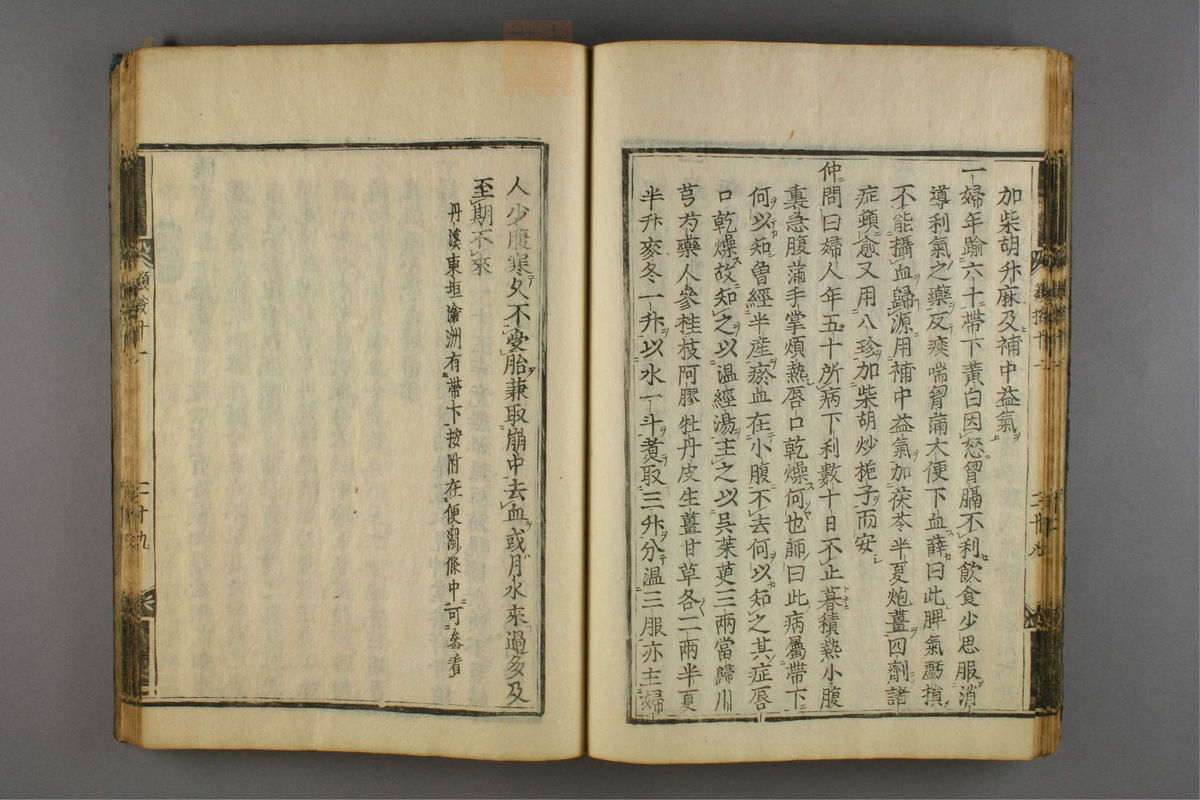 加柴胡升麻及補中益氣
一婦年踰六十帶下黄白因怒胷膈不利飲食少思服消
導利氣之藥反痰喘胷滿大便下血薛曰此脾氣虧損
不能攝血歸源用補中益氣加茯苓半夏炮薑四劑諸
症頓愈又用八珍加柴胡炒梔子而安
仲問曰婦人年五十所病下利數十日不止暮積熱小腹
裏急腹滿手掌煩熱唇口乾燥何也師曰此病屬帶下
何以知曽經半産瘀血在小腹不去何以知之其症唇
口乾燥故知之以温經湯主之以呉茱萸三兩當歸川
芎芍藥人參桂枝阿膠牡丹皮生薑甘草各二兩半夏
半升麥冬一升以水一斗煑取三升分温三服亦主婦
人少腹寒久不受胎兼取崩中去血或月水來過多及
至期不來
丹溪東垣滄洲有帶下按附在便濁條中可叅看
類按十一
二十九